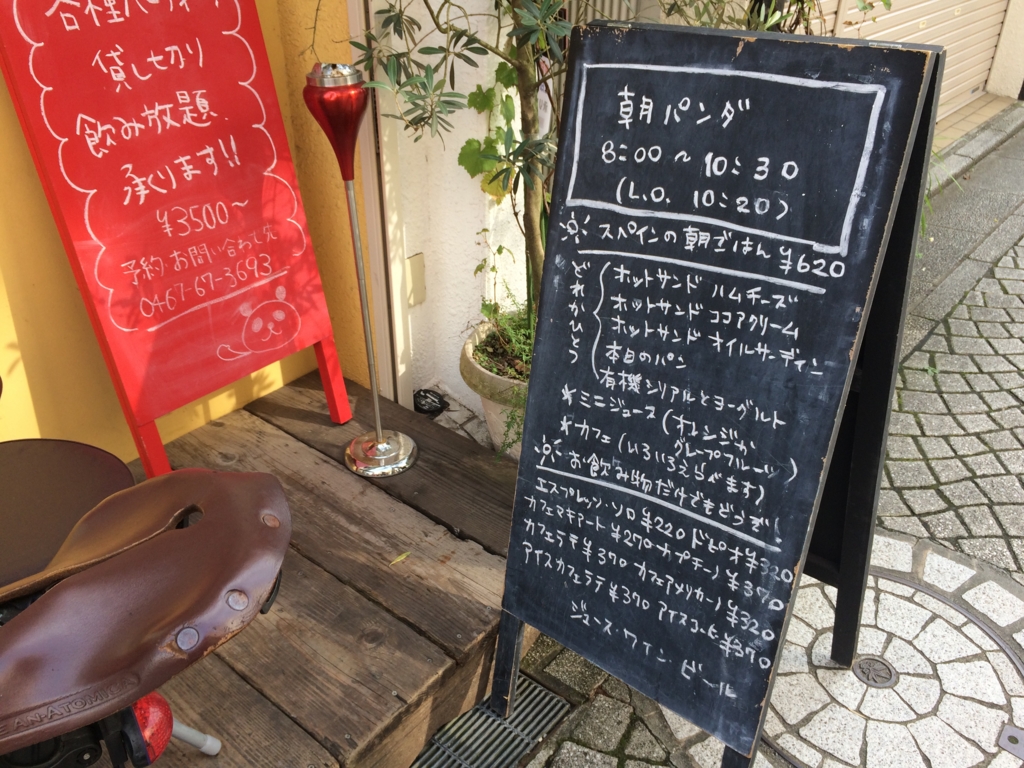 各種パーティー
貸し切り
飲み放題
承ります!!
¥3500~
予約・お問い合わせ先
0467-67-3693
朝パンダ
8:00~10:30
(L.O. 10:20)
スペインの朝ごはん ¥620
どれかひとつ
ホットサンド ハムチーズ
ホットサンド ココアクリーム
ホットサンド オイルサーディン
本日のパン
有機シリアルとヨーグルト
*ミニジュース(オレンジか
グレープフルーツ)
*カフェ(いろいろえらべます)
お飲み物だけでもどうぞ!
エスプレッソ・ソロ ¥220 ドピオ ¥320
カフェマキアート ¥270 カプチーノ ¥370
カフェラテ ¥370 カフェアメリカーノ ¥320
アイスカフェラテ ¥370 アイスコーヒー ¥370
ジュース・ワイン・ビール